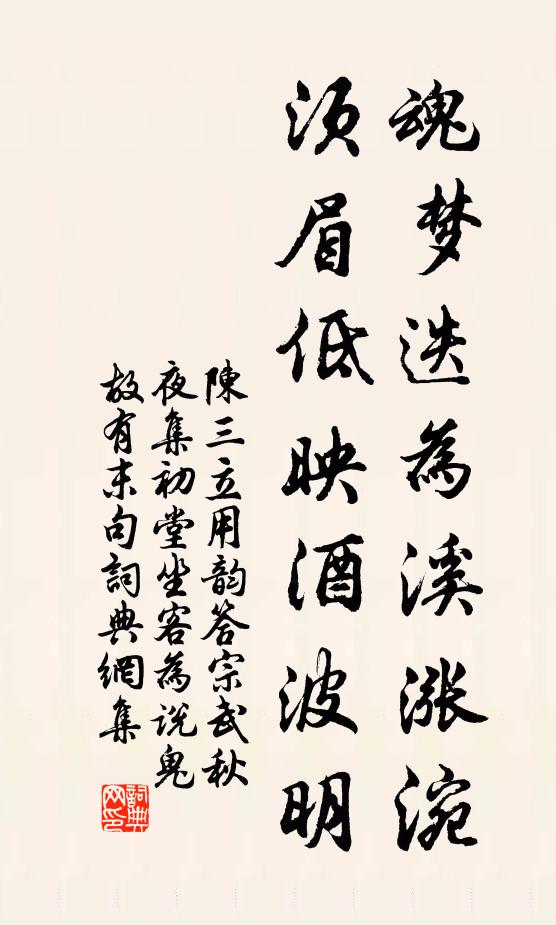 魂梦迭為溪涨涴
须眉低映酒波明
陳三立用韵答宗武秋
夜集初堂坐客為说鬼
故有末句詞典網集
詞典网印